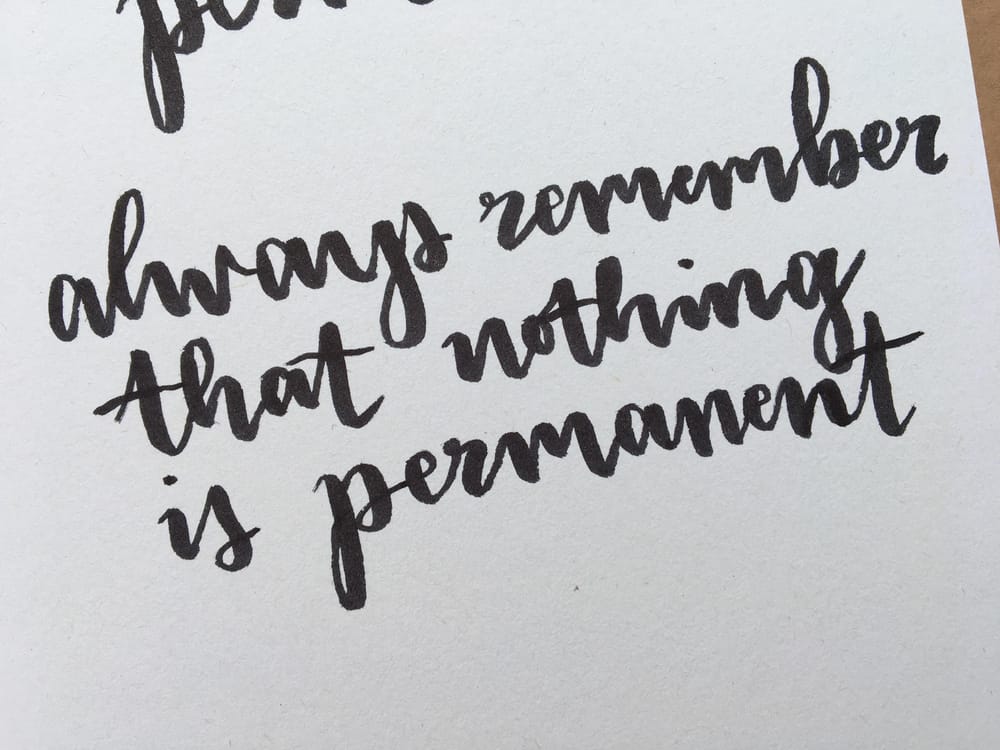 always remember
that nothing
is permanent